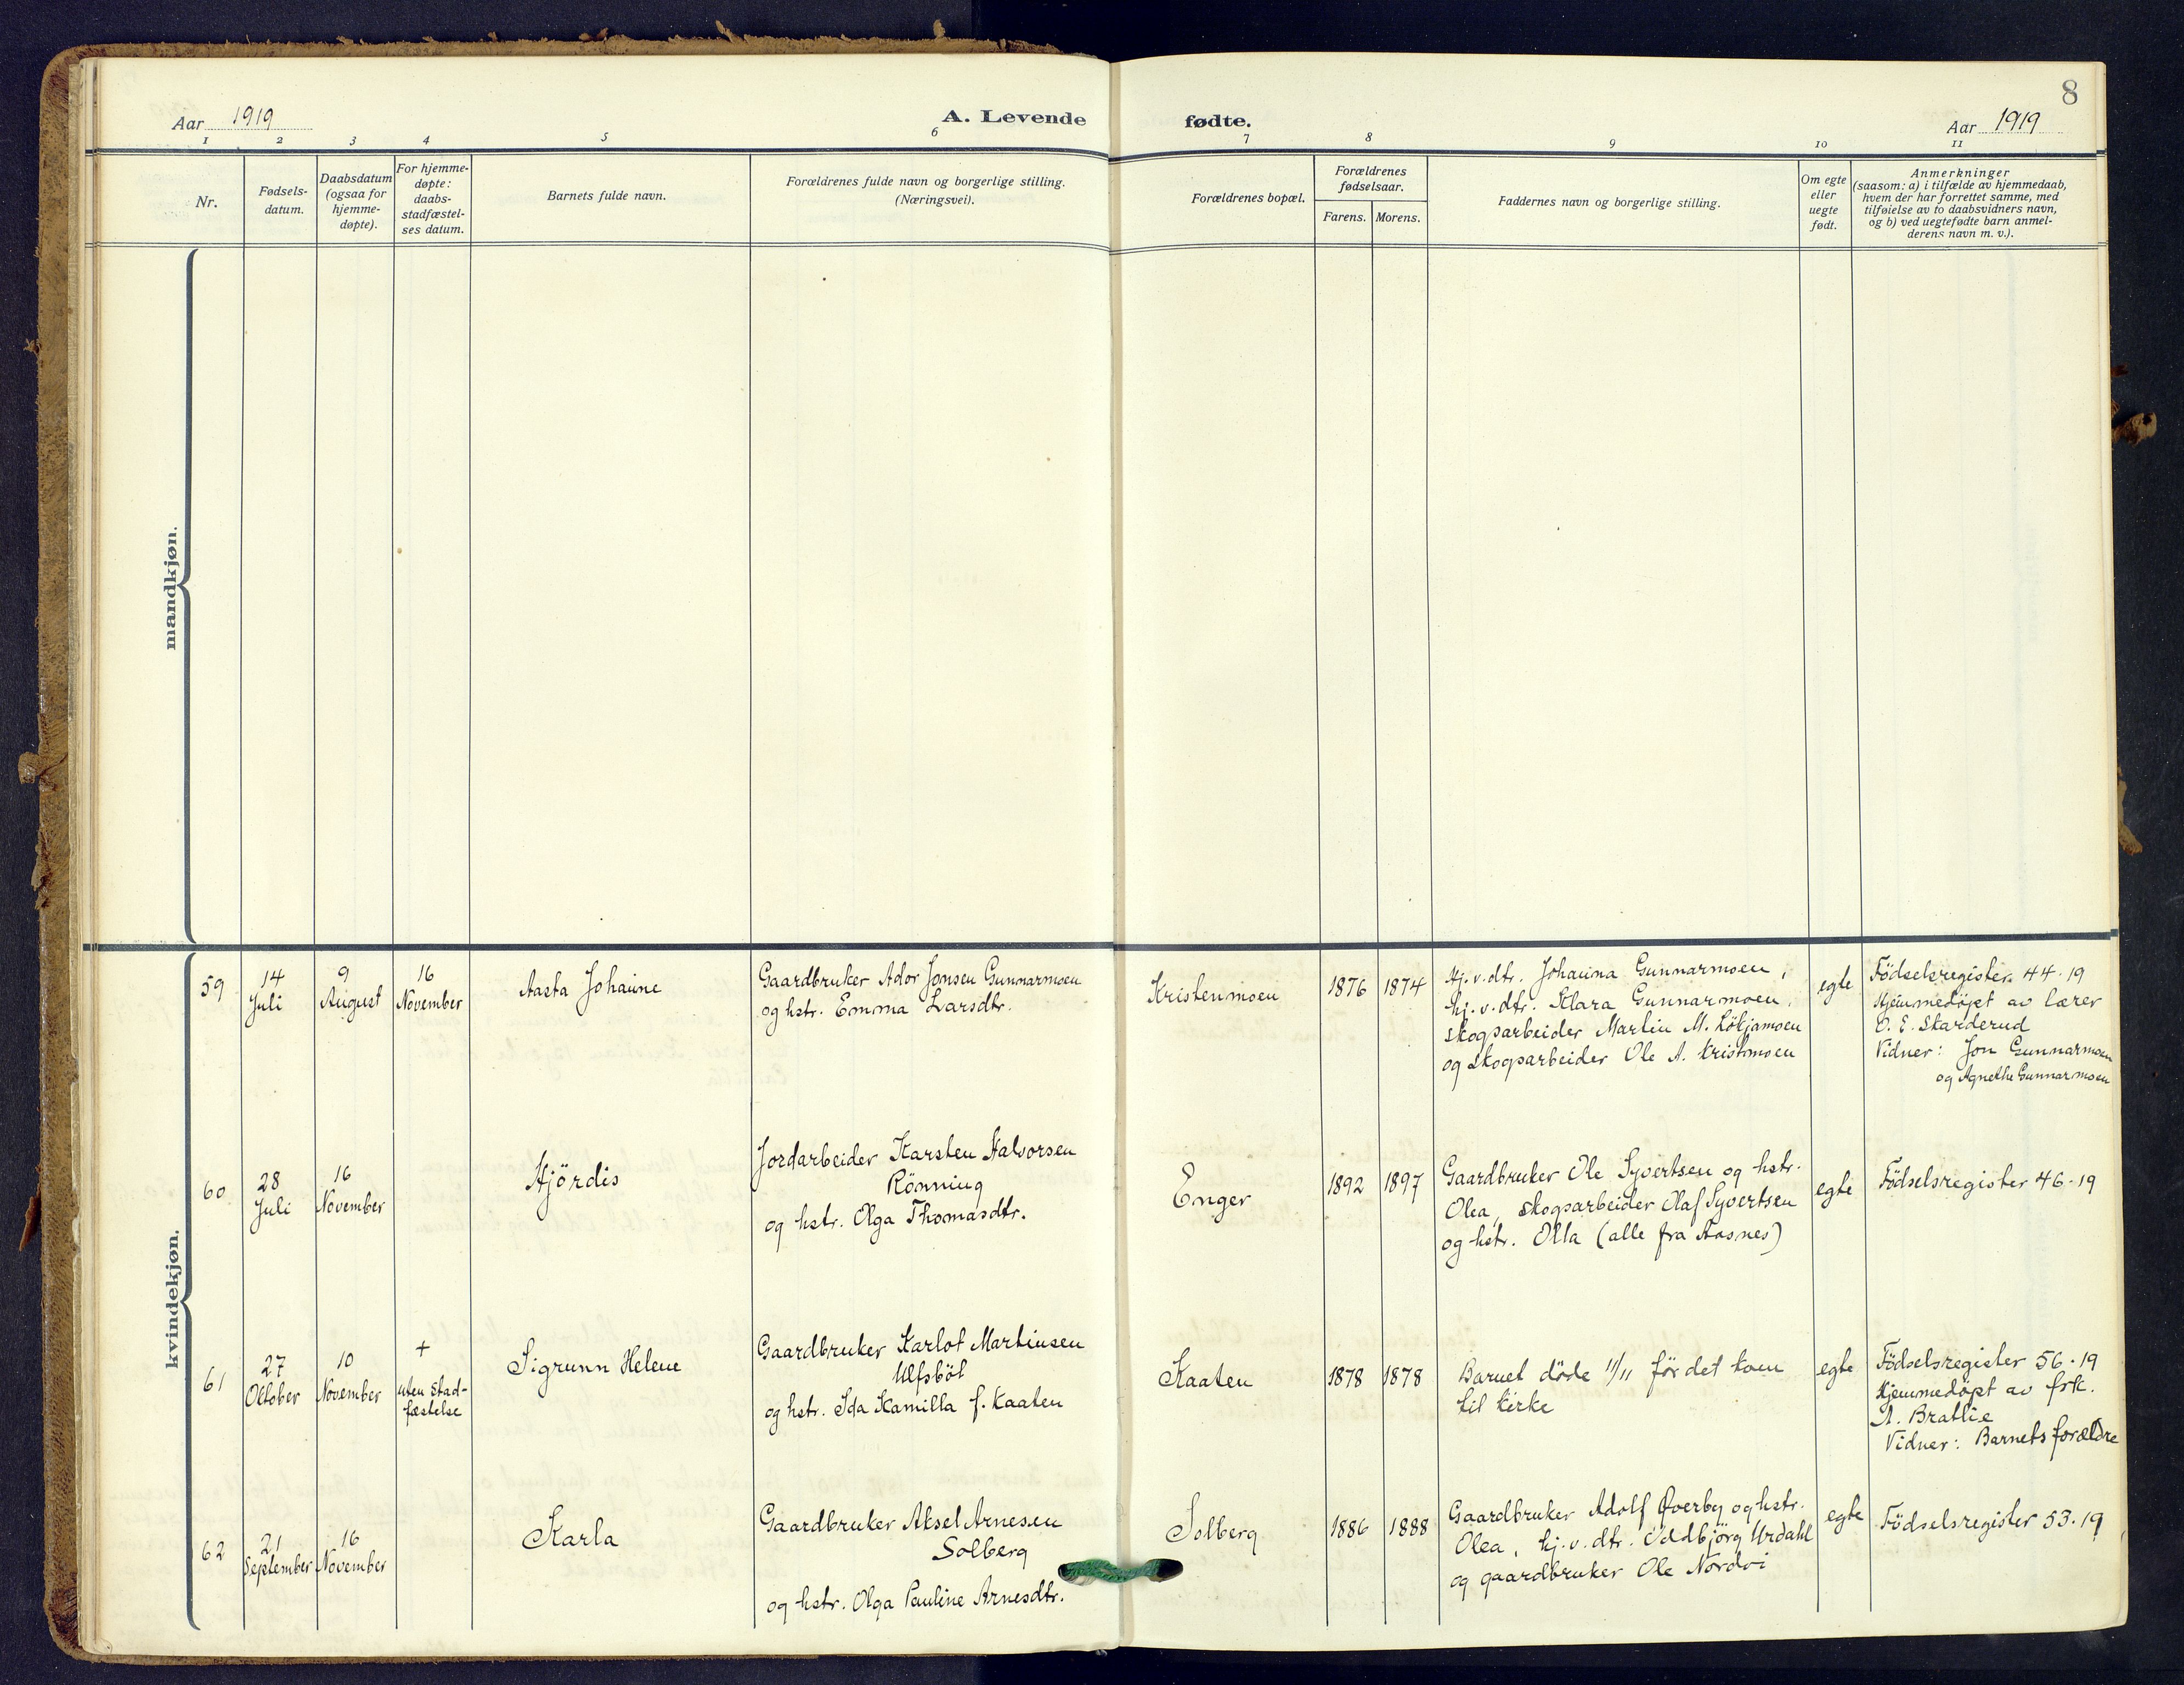 8
Aar 1919
A. Levende fødte.
Aar 1919
1 2 3 4 5 6 7 8 9 10 11
Nr.
Fødsels-
datum.
Daabsdatum
(ogsaa for
hjemme-
døpte).
For hjemme-
døpte:
daabs-
stadfæstel-
ses datum.
Barnets fulde navn.
Forældrenes fulde navn og borgerlige stilling.
(Næringsvei).
Forældrenes bopæl.
Forældrenes
fødselsaar.
Farens. Morens.
Faddernes navn og borgerlige stilling.
Om egte
eller
uegte
født.
Anmerkninger
(saasom: a) i tilfælde av hjemmedaab,
hvem der har forrettet samme, med
tilføielse av to daabsvidners navn,
og b) ved uegtefødte barn anmel-
derens navn m. v.).
mandkjøn.
kvindekjøn.
59
14
Juli
9
August
16
November
Aasta Johanne
Gaardbruker Ador Jonsen Gunnarmoen
og hstr. Emma Larsdtr.
Kristenmoen
1876
1874
Hj.v.dtr. Johanna Gunnarmoen,
hj.v.dtr. Klara Gunnarmoen,
skogsarbeider Martin M. Lökjamoen
og skogsarbeider Ole A. Kristmoen
egte
Födselsregister 44-19
Hjemmedöpt av lærer
O. E. Skarderud
Vidner: Jon Gunnarmoen
og Agnethe Gunnarmoen
60
28
Juli
16
November
Hjördis
Jordarbeider Karsten Halvorsen
Rönning
og hstr. Olga Thomasdtr.
Enger
1892
1897
Gaardbruker Ole Syvertsen og hstr.
Olea, skogsarbeider Olaf Syvertsen
og hstr. Olla (alle fra Aasnes)
egte
Födselsregister 46-19
61
27
Oktober
10
November
+
uten stad-
fæstelse
Sigrunn Helene
Gaardbruker Karlot Martinsen
Ulfsböl
og hstr. Ida Kamilla f. Kaaten
Kaaten
1878
1878
Barnet döde 11/11 för det kom
til kirke
egte
Födselsregister 56-19
Hjemmedöpt av frk.
A. Bratlie
Vidner: Barnets forældre
62
21
September
16
November
Karla
Gaardbruker Aksel Arnesen
Solberg
og hstr. Olga Pauline Arnesdtr.
Solberg
1886
1888
Gaardbruker Adolf Qverby og hstr.
Olea, hj.v.dtr. Oddbjörg Urdahl
og gaardbruker Ole Nordvi
egte
Födselsregister 53-19